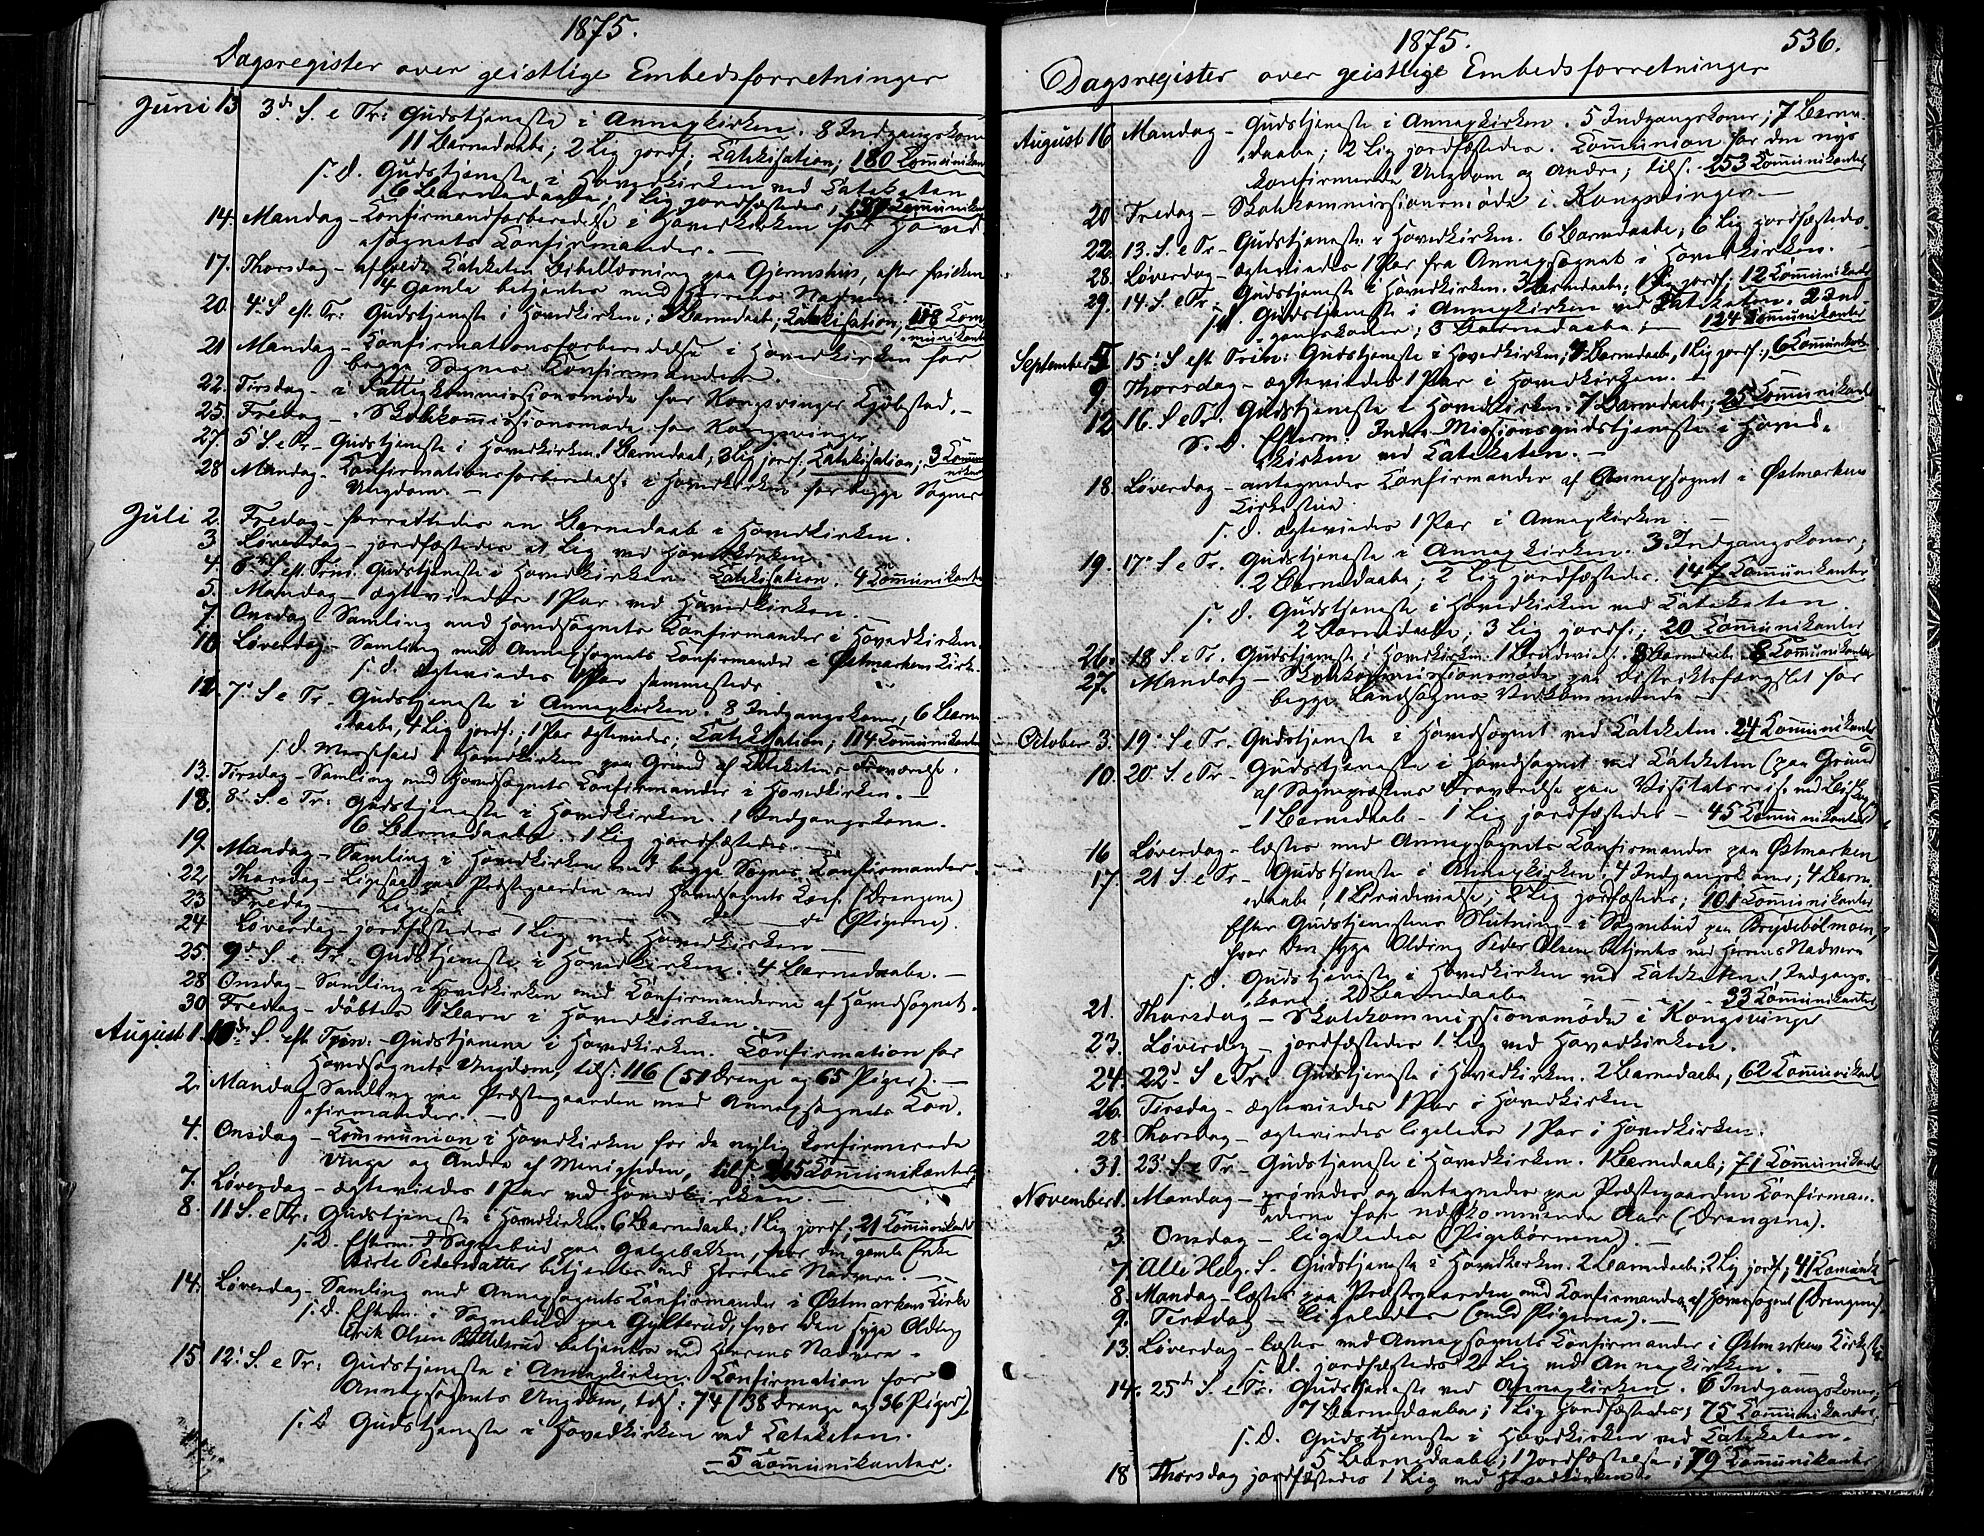 1875.
Dagsregister over geistlige Embedsforretninger
Juni 13 3de S. e Tr: Gudstjeneste i Annexkirken. 8 Indgangskoner
11 Barnedaabe; 2 Lig jordf; Catekisation; 180 Communikan
s. D. Gudstjeneste i Hovedkirken ved Cateketen
6 Barnedaabe, 1 Lig jordfæstedes, Communikan
14. Mandag – Confirmandforberedelse i Hovedkirken for Hoved
sognets Confirmander. –
17. Thorsdag – Cateketen Bibellæsning paa Gjermshus, efter hvilken
4 Gamle betjentes med Herrens Nadvere.
20. 4. S eft. Tr: Gudstjeneste i Hovedkirken; 3 Barnedaabe; Catekisation; 118 Com
munikanter
21 Mandag – Confirmationsforberedelse i Hovedkirken for
begge Sognes Confirmander.
22. Tirsdag – i Fattigkommissionsmøde for Kongsvinger Kjøbstad. –
25. Fredag – Skolekommissionsmøde for Kongsvinger.
27. 5 S e Tr – Gudstjeneste i Hovedkirken. 1 Barnedaab, 3 Lig jordf. Catekisation; 3 Commu
nikan
28 Mandag – Confirmationsforberedelse i Hovedkirken for begge Sognes
Ungdom. –
Juli 2. Fredag – forrettedes en Barnedaab i Hovedkirken.
3 Løverdag – jordfæstedes et Lig ved Hovedkirken.
4. 6te S. eft. Trin. Gudstjeneste i Hovedkirken. Catekisation. 4 Communikanter
5. Mandag – ægteviedes 1 Par ved Hovedkirken. –
7. Onsdag – Samling med Hovedsognets Confirmander i Hovedkirken.
10 Løverdag – Samling med Annexsognets Confirmander i Østmarkens Kirk.
s. D. ægteviedes 1 Par sammesteds
7. S e Tr. Gudstjeneste i Annexkirken. 8 Indgangskoner, 6 Barne
daabe, 4 Lig jordf.; 1 Par ægteviedes; Catekisation; 114 Communikanter
s. D. Messefald i Hovedkirken paa Grund af Cateketens Fraværelse.
13. Tirsdag – Samling med Hovedsognets Confirmander i Hovedkirken. –
18. 8. S. e Tr: Gudstjeneste i Hovedkirken. 1 Indgangskone.
6 Barnedaabe. 1 Lig jordfæstedes. –
19. Mandag – Samling i Hovedkirken med begge Sognes Confirmander.
22 Thorsdag – Ligesaa paa Præstegaarden med Hovedsognets Conf. (Drengene)
23 Fredag – Ligesaa – do (Pigerne).
24 Løverdag – jordfæstedes 1 Lig ved Hovedkirken –
25. 9de S. e Tr – Gudstjeneste i Hovedkirken. 4 Barnedaabe. –
28 Onsdag – Samling i Hovedkirken med Confirmanderne af Hovedsognet.
30 Fredag – døbtes 1 Barn i Hovedkirken.
August 1. 10de S. eft Trin. – Gudstjeneste i Hovedkirken. Confirmation for
Hovedsognets Ungdom, tils: 116 (51 Drenge og 65 Piger). –
2. Mandag Samling paa Præstegaarden med Annexsognets Con
firmander. –
4. Onsdag – Communion i Hovedkirken for de nylig konfirmerede
Unge og Andre af Menigheden, Communikanter
7. Løverdag – ægteviedes 1 Par ved Hovedkirken. –
8. 11 S. e Tr: Gudstjeneste i Hovedkirken. 6 Barnedaabe, 1 Lig jordf; 21 Communikant
s. D. Efterm. i Sognebud paa Galgebakken, hvor den gamle Enke
Pedersdatter betjentes med Herrens Nadvere. –
14. Løverdag – Samling med Annexsognets Confirmander i Østmarkens Kirke
s. D. Efterm. i Sognebud paa, hvor den syge Olding
Erik Olsen betjentes med Herrens Nadvere.
15 12: S. e Tr: Gudstjeneste i Annexkirken. Confirmation for
Annexsognets Ungdom, tils: 74 (38 Drenge og 36 Piger).
s. D Gudstjeneste i Hovedkirken ved Cateketen.
– 5 Communikanter.
1875. 536.
Dagsregister over geistlige Embedsforretninger
August 16 Mandag – Gudstjeneste i Annexkirken. 5 Indgangskoner; 7 Barne
daabe; 2 Lig jordfæstedes. Communion for den nys
konfirmerede Ungdom og Andre; tils. 253 Communikanter
20 Fredag – Skolekommissionsmøde i Kongsvinger. –
22. 13. S. e Tr – Gudstjeneste i Hovedkirken. 6 Barnedaabe; 6 Lig jordfæstedes.
28. Løverdag – ægteviedes 1 Par fra Annexsognet i Hovedkirken. –
29. 14. S. e Tr. Gudstjeneste i Hovedkirken. 3 Barnedaabe; 1 Lig jordf; 12 Communikanter
s. D. Gudstjeneste i Annexkirken ved Cateketen. 2 Ind
gangskoner; 3 Barnedaabe; – 124 Communikanter
September 5 15: S. eft Trin: Gudstjeneste i Hovedkirken; Barnedaabe, 1 Lig jordf:, 6 Communikant
9. Thorsdag – ægteviedes 1 Par i Hovedkirken. –
12 16. S e Tr. Gudstjeneste i Hovedkirken. 7 Barnedaabe; 25 Communikant
S. D. Efterm. Indre-Missionsgudstjeneste i Hoved
kirken ved Cateketen. –
18. Løverdag – antagnedes Confirmander af Annexsognet i Østmarkens
Kirkestue
s. D. ægteviedes 1 Par i Annexkirken. –
19. 17. S e Tr. Gudstjeneste i Annexkirken. 3 Indgangskoner;
2 Barnedaabe; 2 Lig jordfæstedes. 147 Communikanter
s. D. Gudstjeneste i Hovedkirken ved Cateketen.
2 Barnedaabe; 3 Lig jordf:; 20 Communikanter
26. 18 S. e Tr. Gudstjeneste i Hovedkirken. 1 Brudevielse. 8 Barnedaabe. 8 Communikanter
27. Mandag – Skolekommissionsmøde paa Distriktsfængslet for
begge Landsognes Vedkommende –
October 3. 19. S e Tr. Gudstjeneste i Hovedsognet ved Cateketen. 24 Communikanter
10. 20. S. e Tr – Gudstjeneste i Hovedsognet ved Cateketen (paa Grund
af Sognepræstens Fraværelse paa Visitatsreise med Biskop
– 1 Barnedaab – 1 Lig jordfæstedes – 45 Communikanter
16 Løverdag – læstes med Annexsognets Confirmander paa Østmarken
17 21 S. e Tr – Gudstjeneste i Annexkirken. 4 Indgangskoner; 4 Barne
daabe; 1 Brudevielse; 2 Lig jordfæstedes; 101 Communikanter
Efter Gudstjenestens Slutning i Sognebud paa Brydebølmoen,
hvor den syge Olding Peder Olsen betjentes med Herrens Nadvere
s. D. Gudstjeneste i Hovedkirken ved Cateketen. 1 Indgangs
kone. 2 Barnedaabe – – 33 Communikanter
21. Thorsdag – Skolekommissionsmøde i Kongsvinger
23. Løverdag – jordfæstedes 1 Lig ved Hovedkirken.
24. 22d. S e Tr: Gudstjeneste i Hovedkirken. 2 Barnedaabe, 62 Communikant
26. Tirsdag – ægteviedes 1 Par i Hovedkirken
28 Thorsdag – ægteviedes ligeledes 1 Par i Hovedkirken.
31. 23: S e Tr – Gudstjeneste i Hovedkirken. 1 Barnedaab; 71 Communikanter
November 1. Mandag – prøvedes og antagnedes paa Præstegaarden Confirman
derne for næstkommende Aar (Drengene).
3. Onsdag – ligeledes (Pigebørnene). –
7. Alle Helg. S. Gudstjeneste i Hovedkirken. 2 Barnedaabe; 2 Lig jordf; 41 Communik
8. Mandag – læstes paa Præstegaarden med Confirmander af Hovedsognet (Drengene)
9. Tirsdag – ligeledes (med Pigerne). –
13. Løverdag – læstes med Annexsognets Confirmander i Østmarkens Kirkestue
s. D. jordfæstedes 2 Lig ved Annexkirken.
14. 25de S. e Tr. Gudstjeneste ved Annexkirken. 6 Indgangskoner;
7 Barnedaabe; 1 Lig jordfæstedes; 75 Communikanter.
s. D. Gudstjeneste i Hovedkirken ved Cateketen.
5 Barnedaabe; 1 Jordfæstelse; 79 Communikanter
18 Thorsdag jordfæstedes 1 Lig ved Hovedkirken.